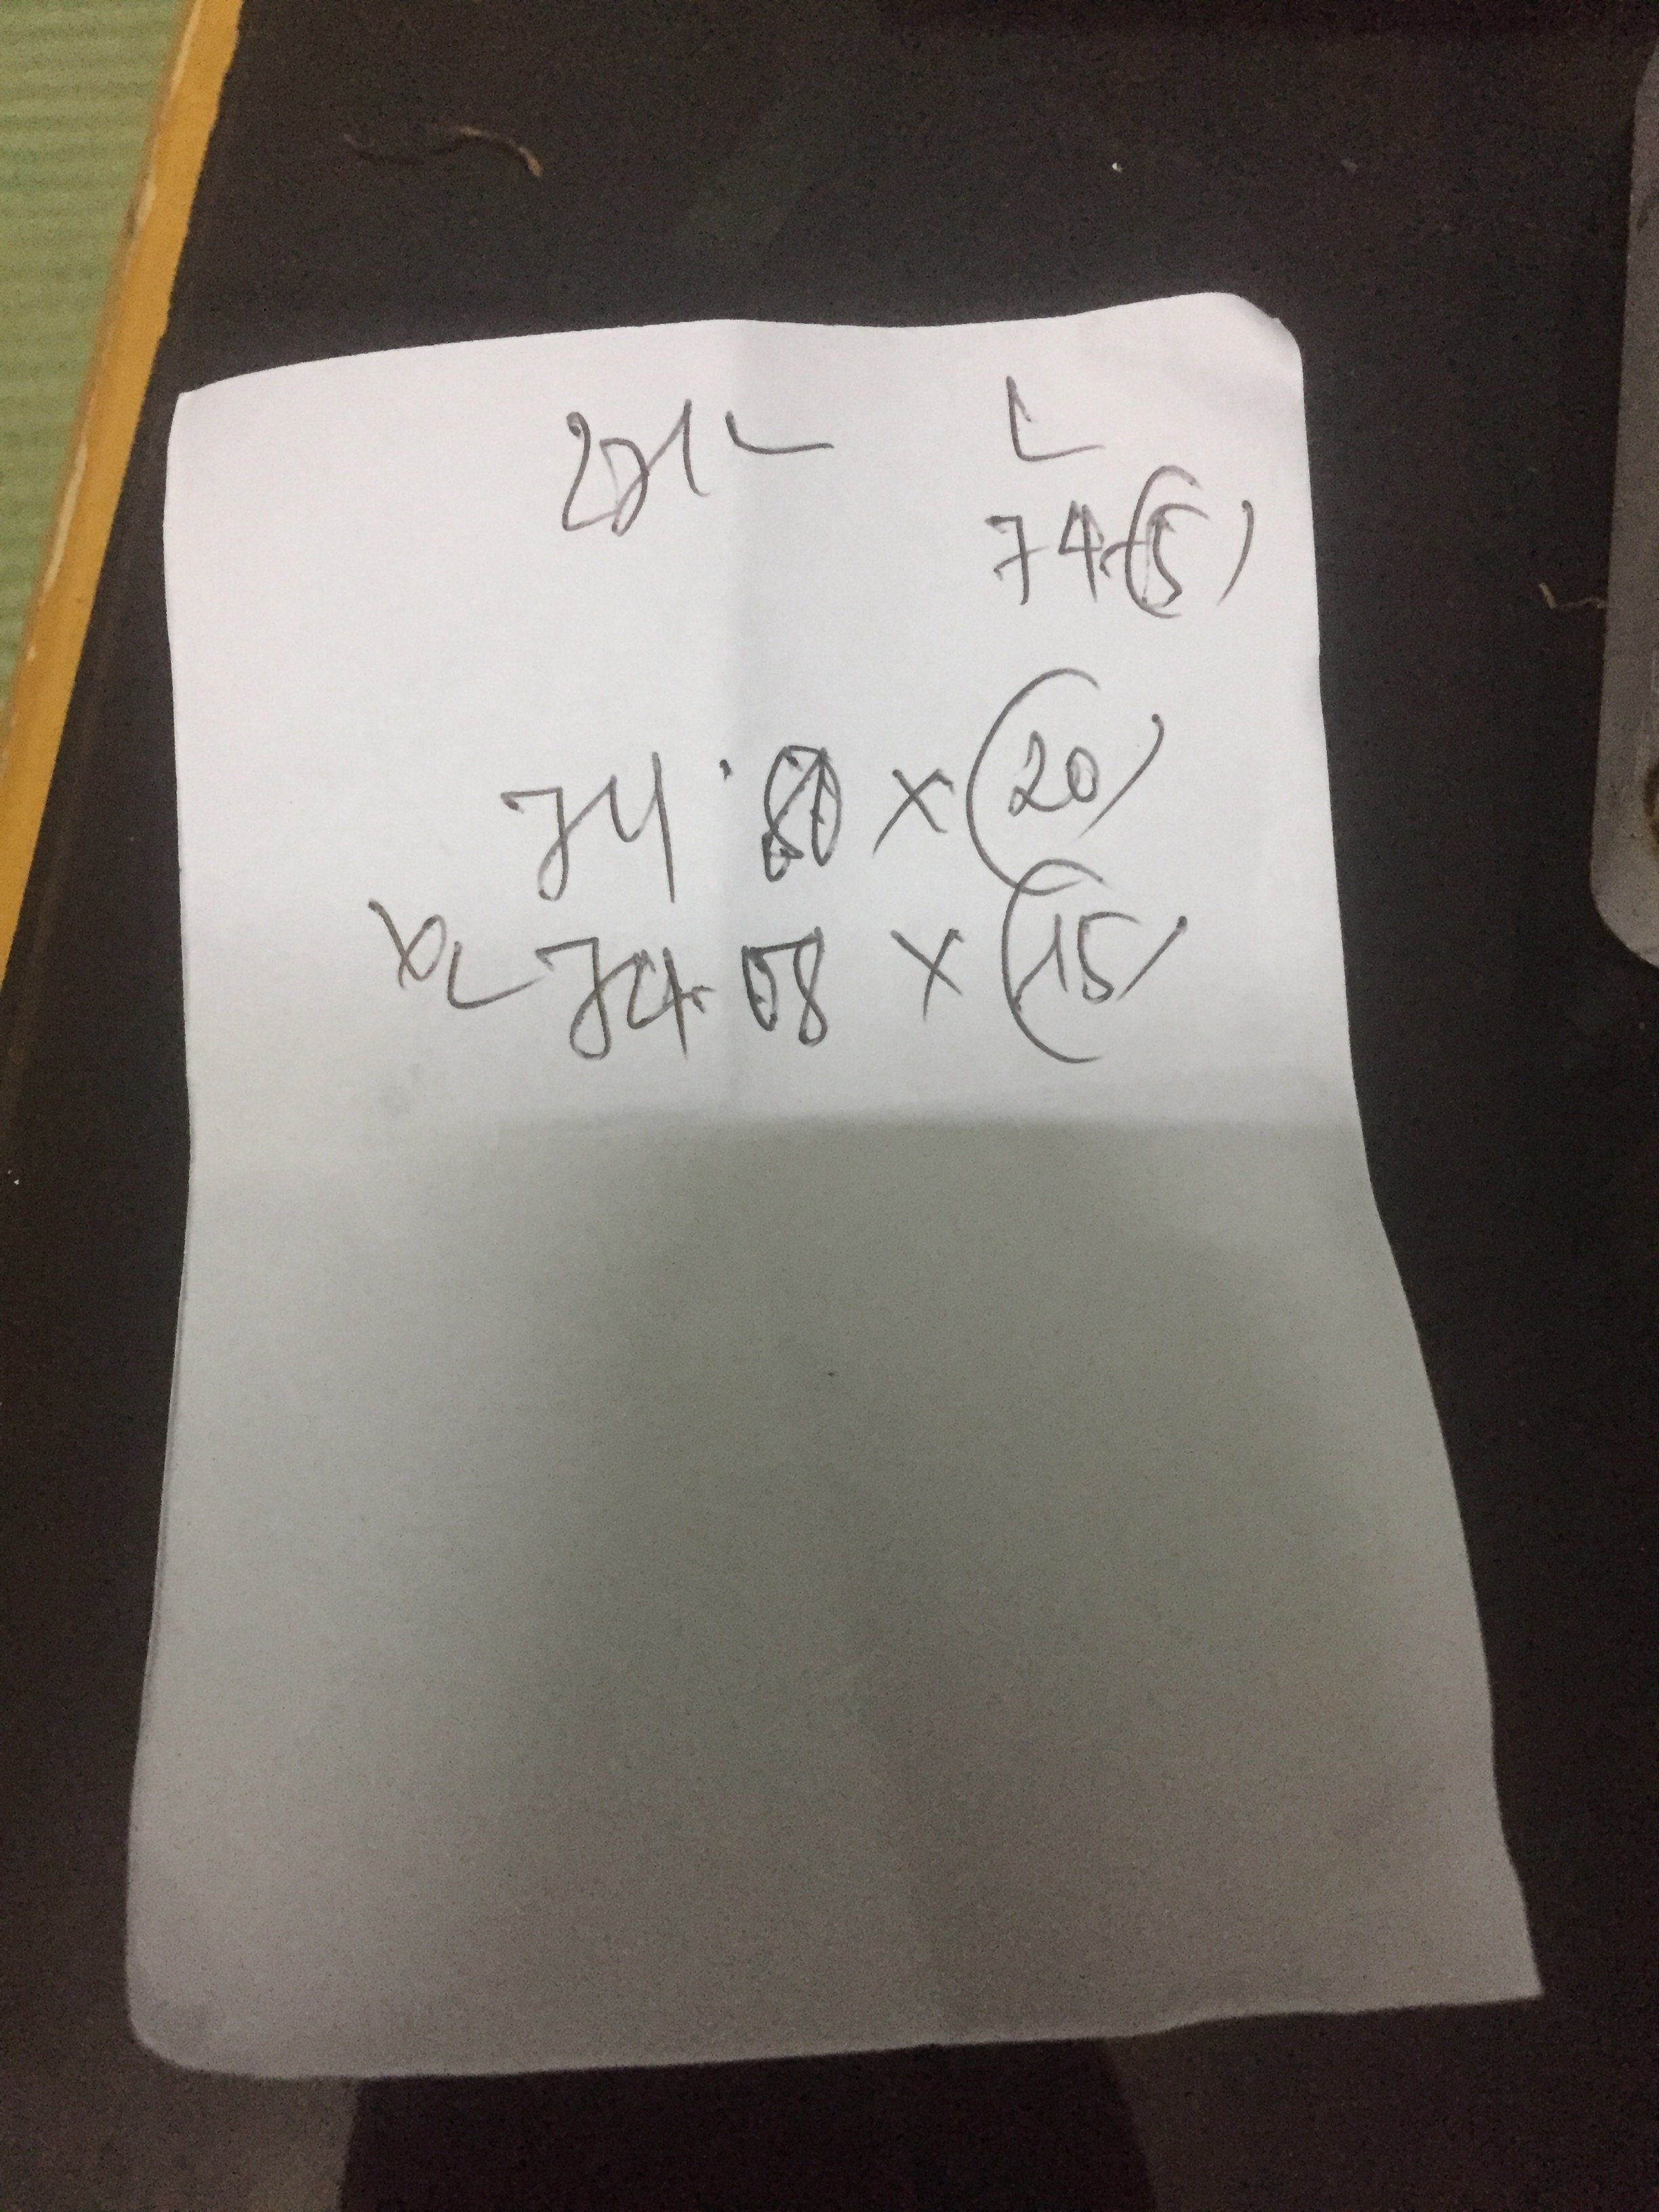 271 L
74.(5)
74.80 x (20)
74.08 x (15)